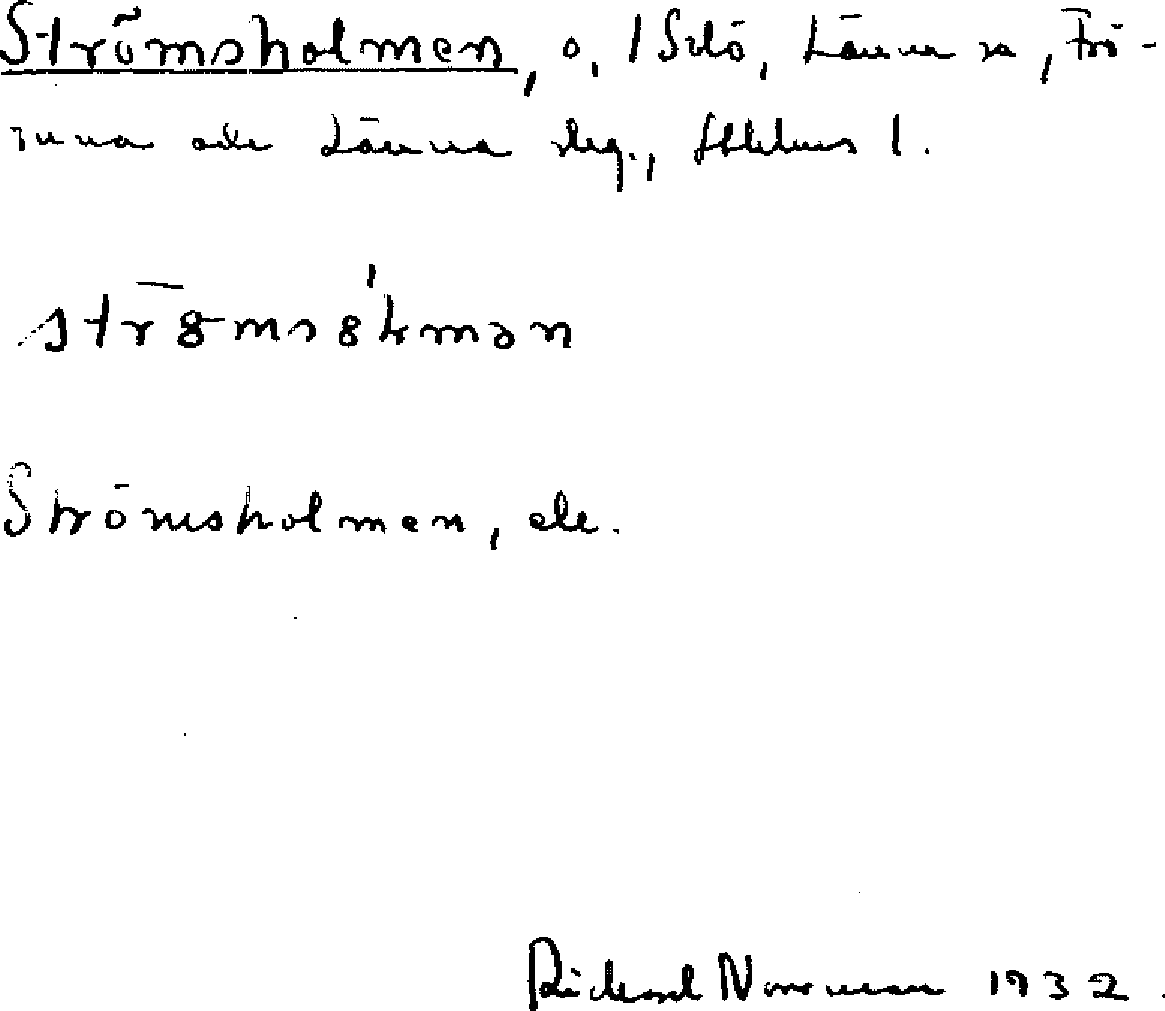 Strömsholmen, ö, /Silö, Länna sn, Frö-
tuna och Länna skg., Sthlms l.
strömsɵlmən
Strömsholmen, ek.
Rickard Norrman 1932.